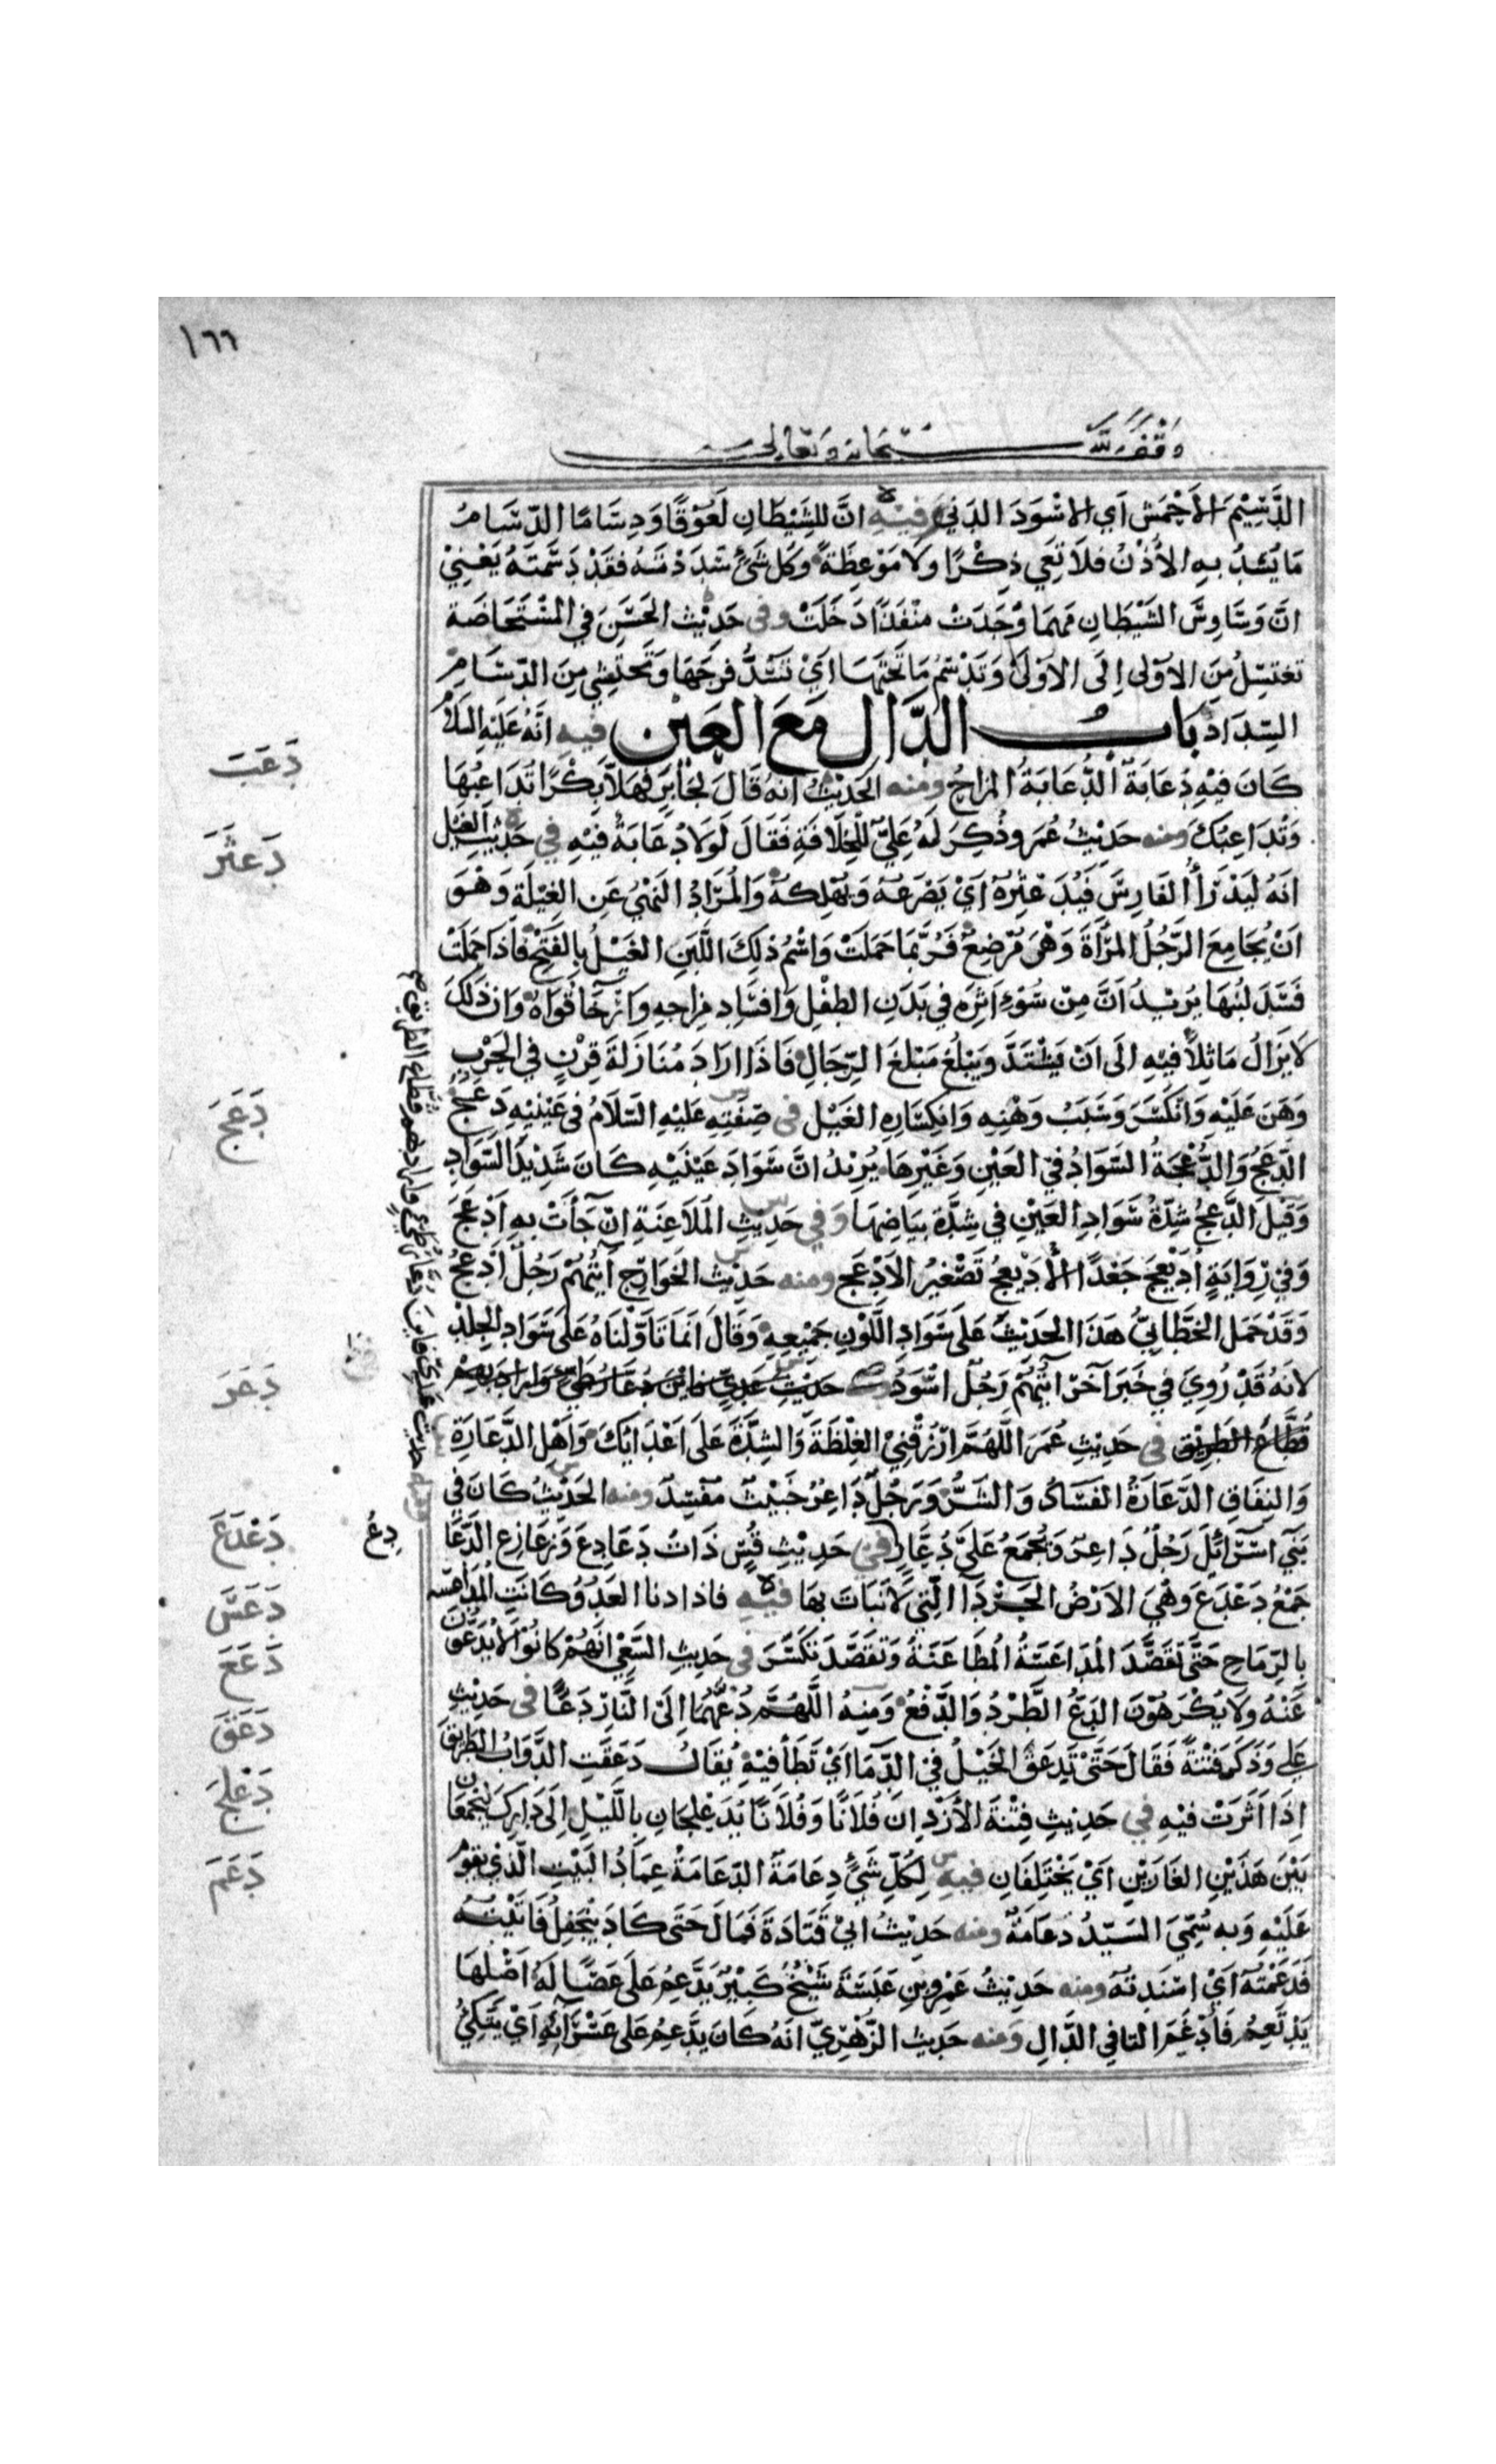 ١٦٦
وقف لله سبحانه وتعالى
الدَّسِيْمَ الأَحْمَشَ اَي الاسْوَدَ الدَنِيَّ فِيْهِ انَّ للشَّيْطَانِ لَعُوْقًا وَدِسَامًا الدِّسَامُ
مَا يُسَدُّ بهِ الأُذْنُ فلَا تَعِي ذِكْرًا ولَا مَوْعِظَةً وكل شَيْءٍ سَدَدْتَهُ فقَدْ دَسَمْتَهُ يَعْنِيْ
انَّ وَسَاوِسَ الشَيْطَانِ مَهمَا وَجَدَتْ مَنْفَذًا دَخَلَتْ وفى حَدِيْثِ الحَسَنِ في المُسْتَحَاضَة
تغتسِلُ مِنَ الاوْلى اِلَى الاوْلَى وَتَدْسُمُ مَا تَحْتَهَا اَيْ تَسُدُّ فرجَهَا وَتحتشِي مِنَ الدِّسَامِ
السِدَاد بَابُ الدَّالِ مَعَ العَيْن فيهِ انَّهُ عَلَيْهِ السَلامُ
كَانَ فيْهِ دُعَابَةٌ الدُّعَابَةُ المزاحُ ومنه الحَدِيْثُ انهُ قَالَ لِجَابِرٍ فهَلّا بِكْرًا تُدَاعِبُهَا
وَتُدَاعِبُكَ ومنه حَدِيْثُ عُمَرَ وذُكِرَ لَهُ عَلِيٌّ لِلْخِلَافَةِ فَقَالَ لَوَلَا دُعَابَةٌ فيْهِ في حَدِيْثِ الغَيْل
انَهُ لَيُدْرِكُ الفَارِسَ فَيُدَعْثِرُهُ اَيْ يَصْرَعُهُ وَيُهْلِكُهُ وَالمُرَادُ النَهْيُ عَنِ الغِيْلَةِ وَهْوَ
اَنْ يُجَامِعَ الرَّجُلُ المَرْأَةَ وَهْيَ مُرْضِعٌ فَرُبَّمَا حَمَلَتْ وَاسْمُ ذلِكَ اللَّبَنِ الغَيْلُ بالفَتْحِ فاذَا حَمَلَتْ
فَسَدَ لبَنُهَا يُرِيْدُ اَنَّ مِنْ سُوْءِ اَثَرِهِ في بَدَنِ الطِفْلِ وَافسَادِ مِزاجِهِ وَارْخَا قُوَاهُ وَانَّ ذلكَ
لا يَزَالُ مَاثِلًا فيْهِ الَى اَنْ يَشْتَدَّ وَيَبْلُغَ مَبْلَغَ الرِّجَالِ فَاذَا ارَادَ مُنَازَلَةَ قِرْنٍ في الحَرْبِ
وَهَنَ عَلَيْهِ وَانْكَسَرَ وَسَبَبُ وَهْنِهِ وَانكِسَارِهِ الغَيْل فى صِفَتِهِ عَلَيْهِ السَّلَامُ فى عَيْنَيْهِ دَعَجٌ
الدَّعَجُ وَالدُّعْجَةُ السَّوَادُ في العَيْنِ وَغَيْرِهَا يُرِيْدُ انَّ سَوَادَ عَيْنَيْهِ كَانَ شَدِيْدَ السَّوَادِ
وَقيلَ الدَّعَجُ شِدَّةُ سَوَادِ العَيْنِ في شِدَّةِ بَيَاضِهَا وَفي حَدِيْثِ المُلَاعِنَةِ اِنْ جَاءَتْ بهِ اَدْعَجَ
وَفي رِوَايَةٍ اُدَيْعِجَ جَعْدًا الأُدَيْعِجُ تَصْغِيْرُ الاَدْعَجِ ومنه حَدِيْثُ الخَوَارِجِ آيَتُهُمْ رَجُلٌ اَدْعَجُ
وَقَدْ حَمَلَ الخَطَّابِيُّ هَذَا الحَدِيْثَ عَلَى سَوَادِ اللَّوْنِ جَمِيْعِهِ وَقَالَ اِنَّمَا تَاَوَّلْنَاهُ عَلَى سَوَادِ الجِلْدِ
لِانهُ قَدْ رُوِيَ في خَبَرٍ آخَرَ آيَتُهُمْ رَجُلٌ اسْوَدُ حَدِيْثِ عَدِيٍّ فاَيْنَ دُعَّارُ طَيِّئٍ وَاراد بهم
قُطَّاعَ الطَّرِيْقِ فى حَدِيْثِ عُمَرَ اللَّهُمَّ ارْزُقْنِيْ الغِلْظَةَ وَالشِدَّةَ عَلَى اَعْدَائِكَ وَاَهْلِ الدَّعَارَةِ
وَالنِفَاقِ الدَّعَارَةُ الفَسَادُ وَالشَرُّ وَرَجُلٌ دَاعِرٌ خَبِيْثٌ مُفْسِدٌ ومنه الحَدِيْثُ كَانَ في
بَنِي اسْرَائِلَ رَجُلٌ دَاعِرٌ وَيُجْمَعُ عَلَى دُعَّارٍ في حَدِيْثِ قُسٍّ ذَاتُ دَعَادِعَ وَزعَازِعَ الدَّعَادِعُ
جَمْعُ دَعْدَعٍ وَهِيَ الارْضُ الجَرْدَا الَّتِي لَا نَبَاتَ بهَا فيْهِ فاذا دنا العَدُوُّ كَانَتِ المُدَاعَسَه
بالرِّمَاحِ حَتَّى تَقَصَّدَ المُدَاعَسَةُ المُطَاعَنَةُ وَتَقَصَّدَ تَكَسَّرَ في حَدِيثِ السَّعْيِ انَّهُمْ كانُوْا لَا يُدَعُّونَ
عَنْهُ وَلَا يُكْرَهُوْنَ الدَّعُّ الطَّرْدُ وَالدَّفْعُ وَمنهُ اللَّهُمَّ دُعَّهُمَا اِلَى النَّارِ دَعًّا فى حَدِيْثِ
عَلي وَذَكَر فِتْنَةً فَقَالَ حَتَّى تَدْعَقَ الخَيْلُ في الدِّمَا اَيْ تَطَأَ فِيْهِ يُقَالُ دَعَقَتِ الدَّوَابُّ الطَّرِيْقَ
اِذَا اَثَّرَتْ فيْهِ في حَدِيْثِ فِتْنَةِ الأَزْدِ انَّ فُلَانًا وَفُلَانًا يُدَعْلِجَانِ بِاللَّيْلِ اِلَى دَارِكَ لِيَجْمَعَا
بَيْنَ هَذَيْنِ الغَارَيْنِ اَيْ يَخْتَلِفَانِ فيهِ لِكُلِّ شَيْءٍ دِعَامَةٌ الدِّعَامَةُ عِمَادُ البَيْتِ الَّذِي يَقُوْمُ
عَلَيْهِ وَبه سُمِّيَ السَيّدُ دِعَامَةً ومنه حَدِيْثُ ابيْ قَتَادَةَ فَمَالَ حَتَى كَادَ يَنْجَفِلُ فَاَتَيْتُهُ
فَدَعَمْتُهُ اَيْ اسْنَدتُهُ ومنه حَدِيْثُ عَمْرِو بنِ عَبَسَةَ شَيْخٌ كَبِيْرٌ يَدَّعِمُ عَلَى عَصًا لَهُ اَصْلُهَا
يَدْتَعِمُ فَاُدْغِمَ التا في الدَّالِ وَمنه حَدِيْث الزُّهْرِيِّ انهُ كَانَ يَدَّعِمُ عَلى عَسْرَائِهِ اَيْ يَتَّكِئُ
دَعَبَ
دَعثَرَ
دَعَجَ
دَعَرَ
دَعْدَعَ
دع
دَعَسَ
دَعَعَ
دَعَقَ
دَعْلَجَ
دَعَمَ